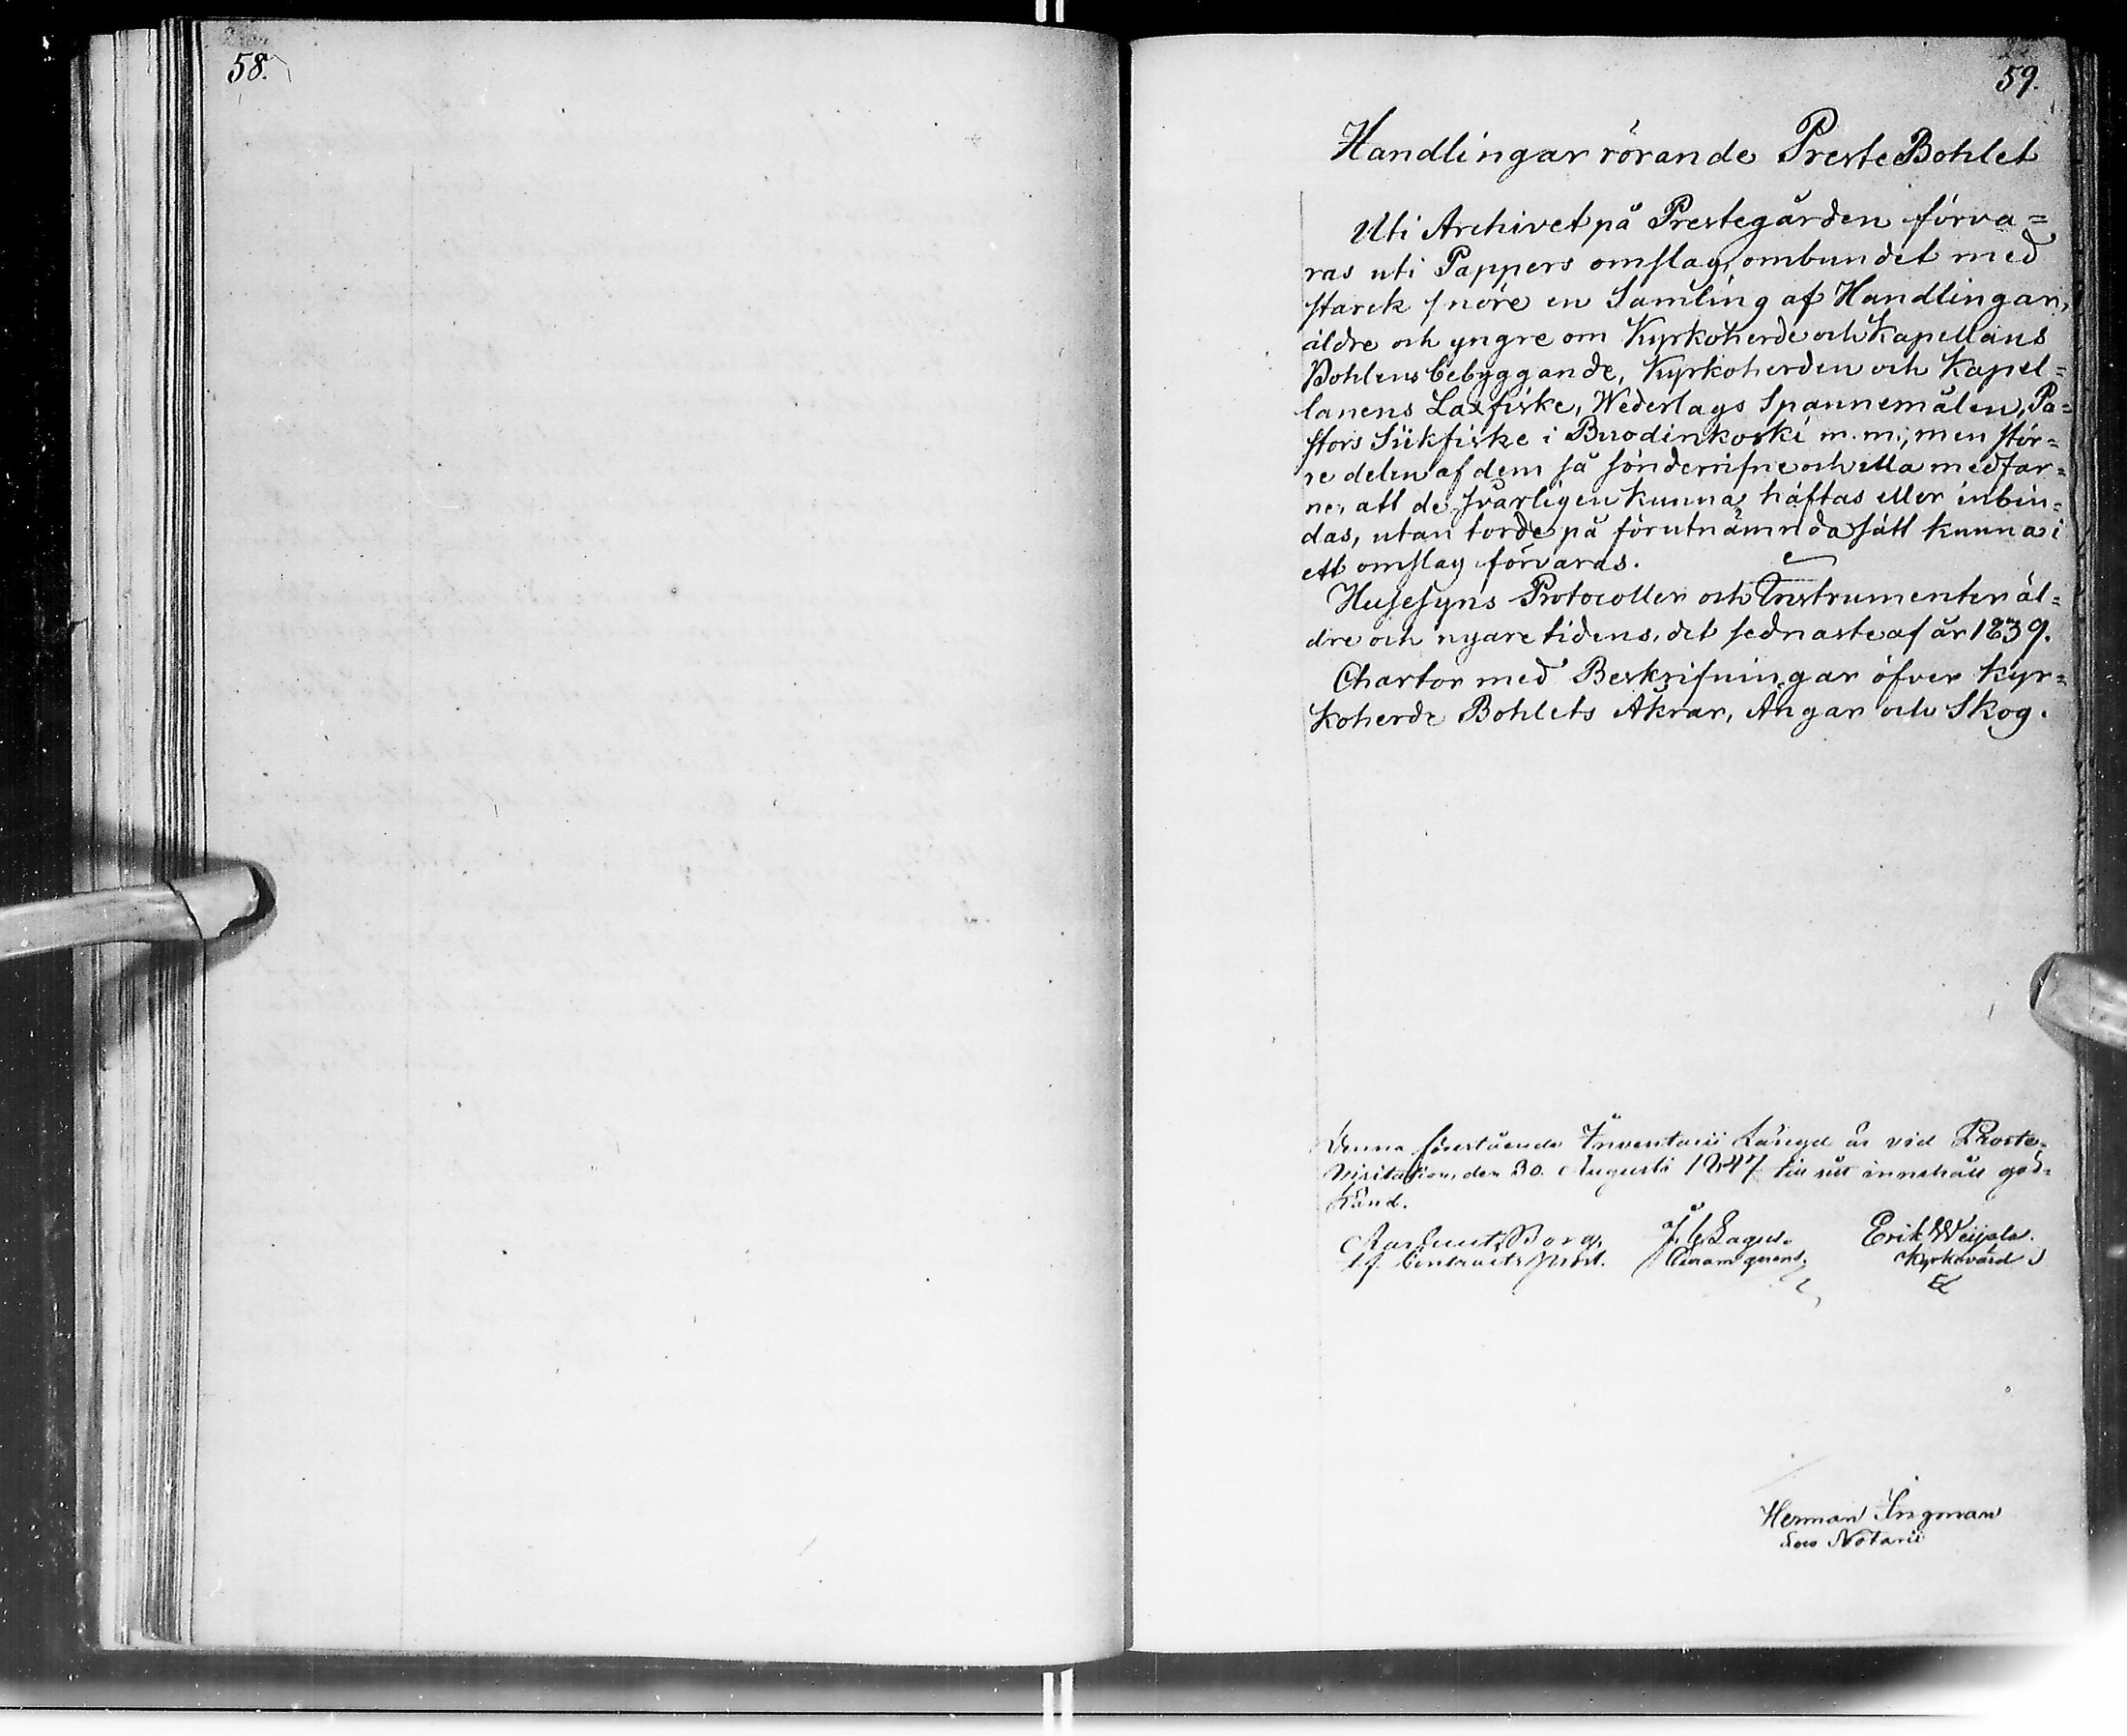 58.
59.
Handlingar rörande Preste Bohlet
Uti Archivet på Prestegården förva=
ras uti Pappers omslag, ombundet med
starck snöre en Samling af Handlingar,
äldre och yngre om Kyrkoherde och Kapellans
Bohlens bebyggande, Kyrkoherden och Kapel=
lanens Laxfiske, Wederlags Spannemålen, Pa=
stors Siikfiske i Buodinkoski m.m.; men stör=
re delen af dem så sönderrifne och illa medfar=
ne, att de svårligen kunna häftas eller inbin=
das, utan torde på förutnämnda sätt kunna i
ett omslag förvaras.
Husesyns Protocoller och Instrumenter äl=
dre och nyare tidens, det sednaste af år 1839.
Chartor med Beskrifningar öfver Kyr=
koherde Bohlets Åkrar, Ängar och Skog.
Denna förestående Inventarii Längd är vid Proste=
Visitation, den 30. Augusti 1847 till sitt innehåll god=
känd.
Borg, J. G. Lagus. Erik Weijola.
tf. Contracts Prost. Curam gerens. Kyrkovärd
Herman Ingman
Loco Notarii